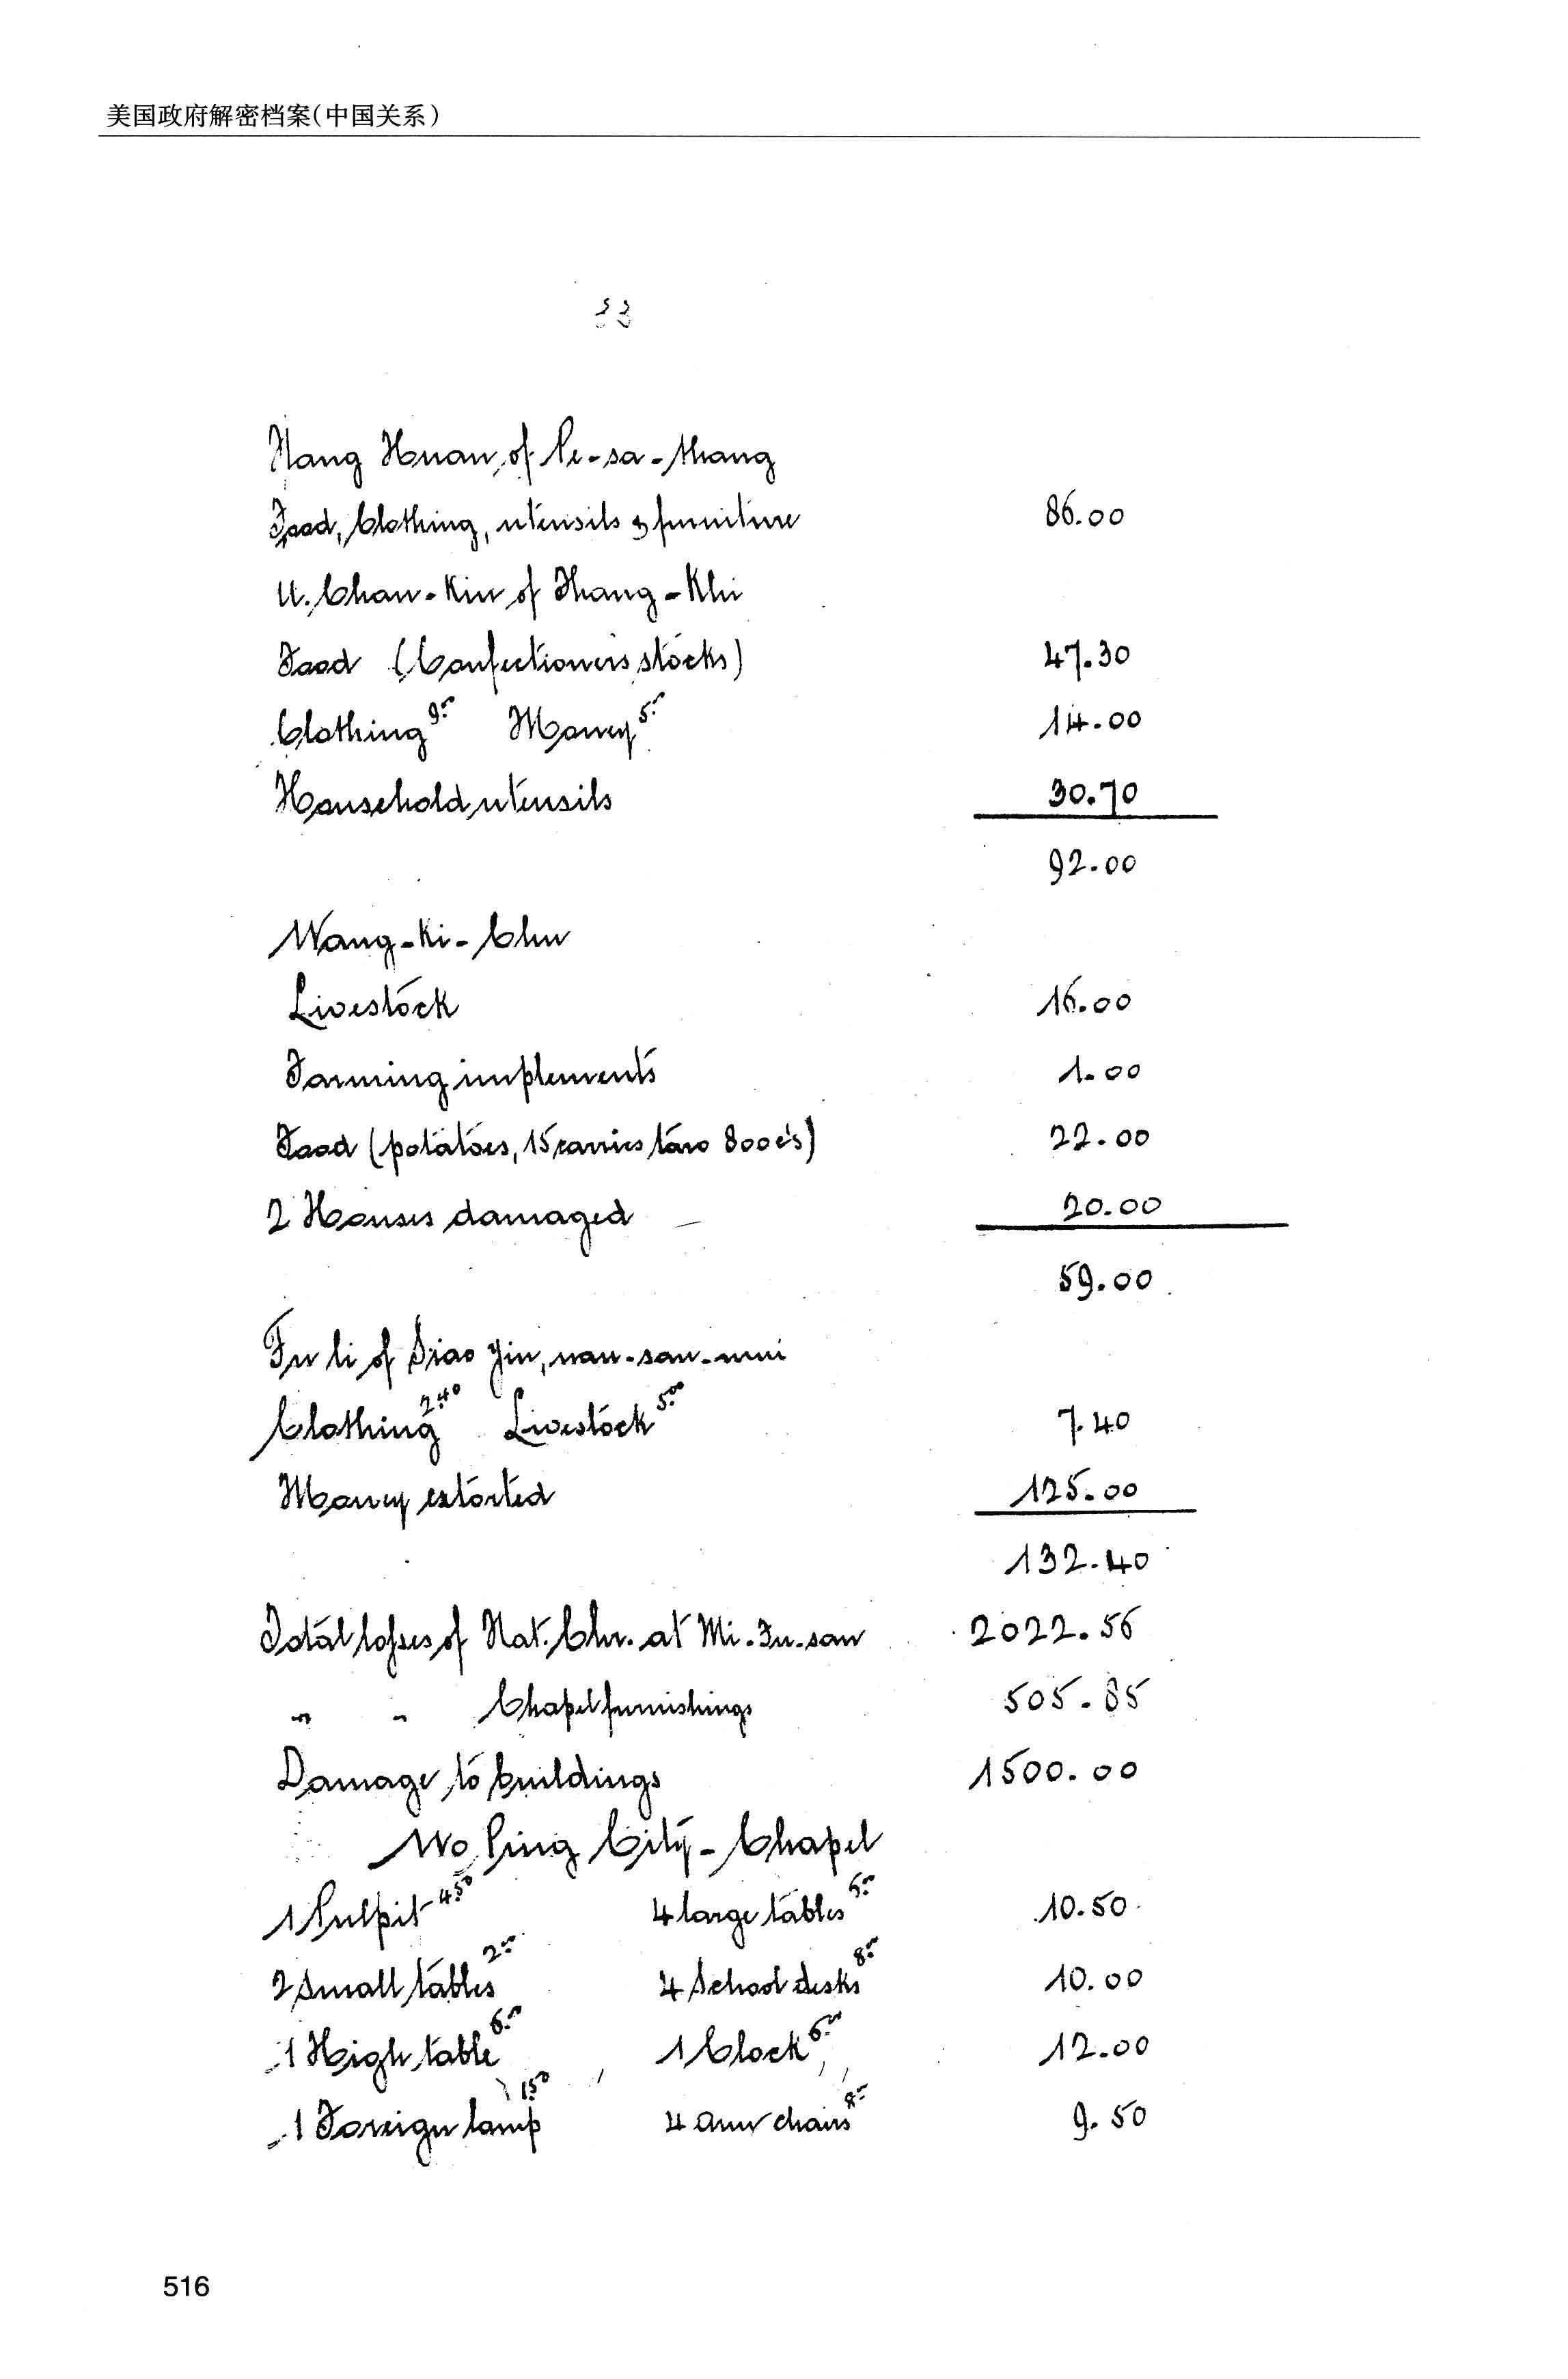 美国政府解密档案(中国关系)
33
Hang Huan, of Pe-sa-thang
Food, Clothing, utensils & furniture 86.00
U. Chan-Kin of Thang-Khi
Food (Confectioners stocks) 47.30
Clothing 9.00 Money 5.00 14.00
Household utensils 30.70
92.00
Wang-Ki-Chu
Livestock 16.00
Farming implements 1.00
Food (potatoes, 15 carries taro 800 c's) 22.00
2 Houses damaged 20.00
59.00
Fu li of Siao Yin, nan-san-mui
Clothing 2.40 Livestock 5.00 7.40
Money extorted 125.00
132.40
Total losses of Nat. Chr. at Mi-Fu-san 2022.56
" " Chapel furnishings 505.85
Damage to buildings 1500.00
Wo Ping City-Chapel
1 Pulpit 4.50 4 large tables 6.00 10.50
2 Small tables 2.00 4 School desks 8.00 10.00
1 High table 6.00 1 Clock 6.00 12.00
1 Foreign lamp 1.50 4 Arm chairs 8.00 9.50
516